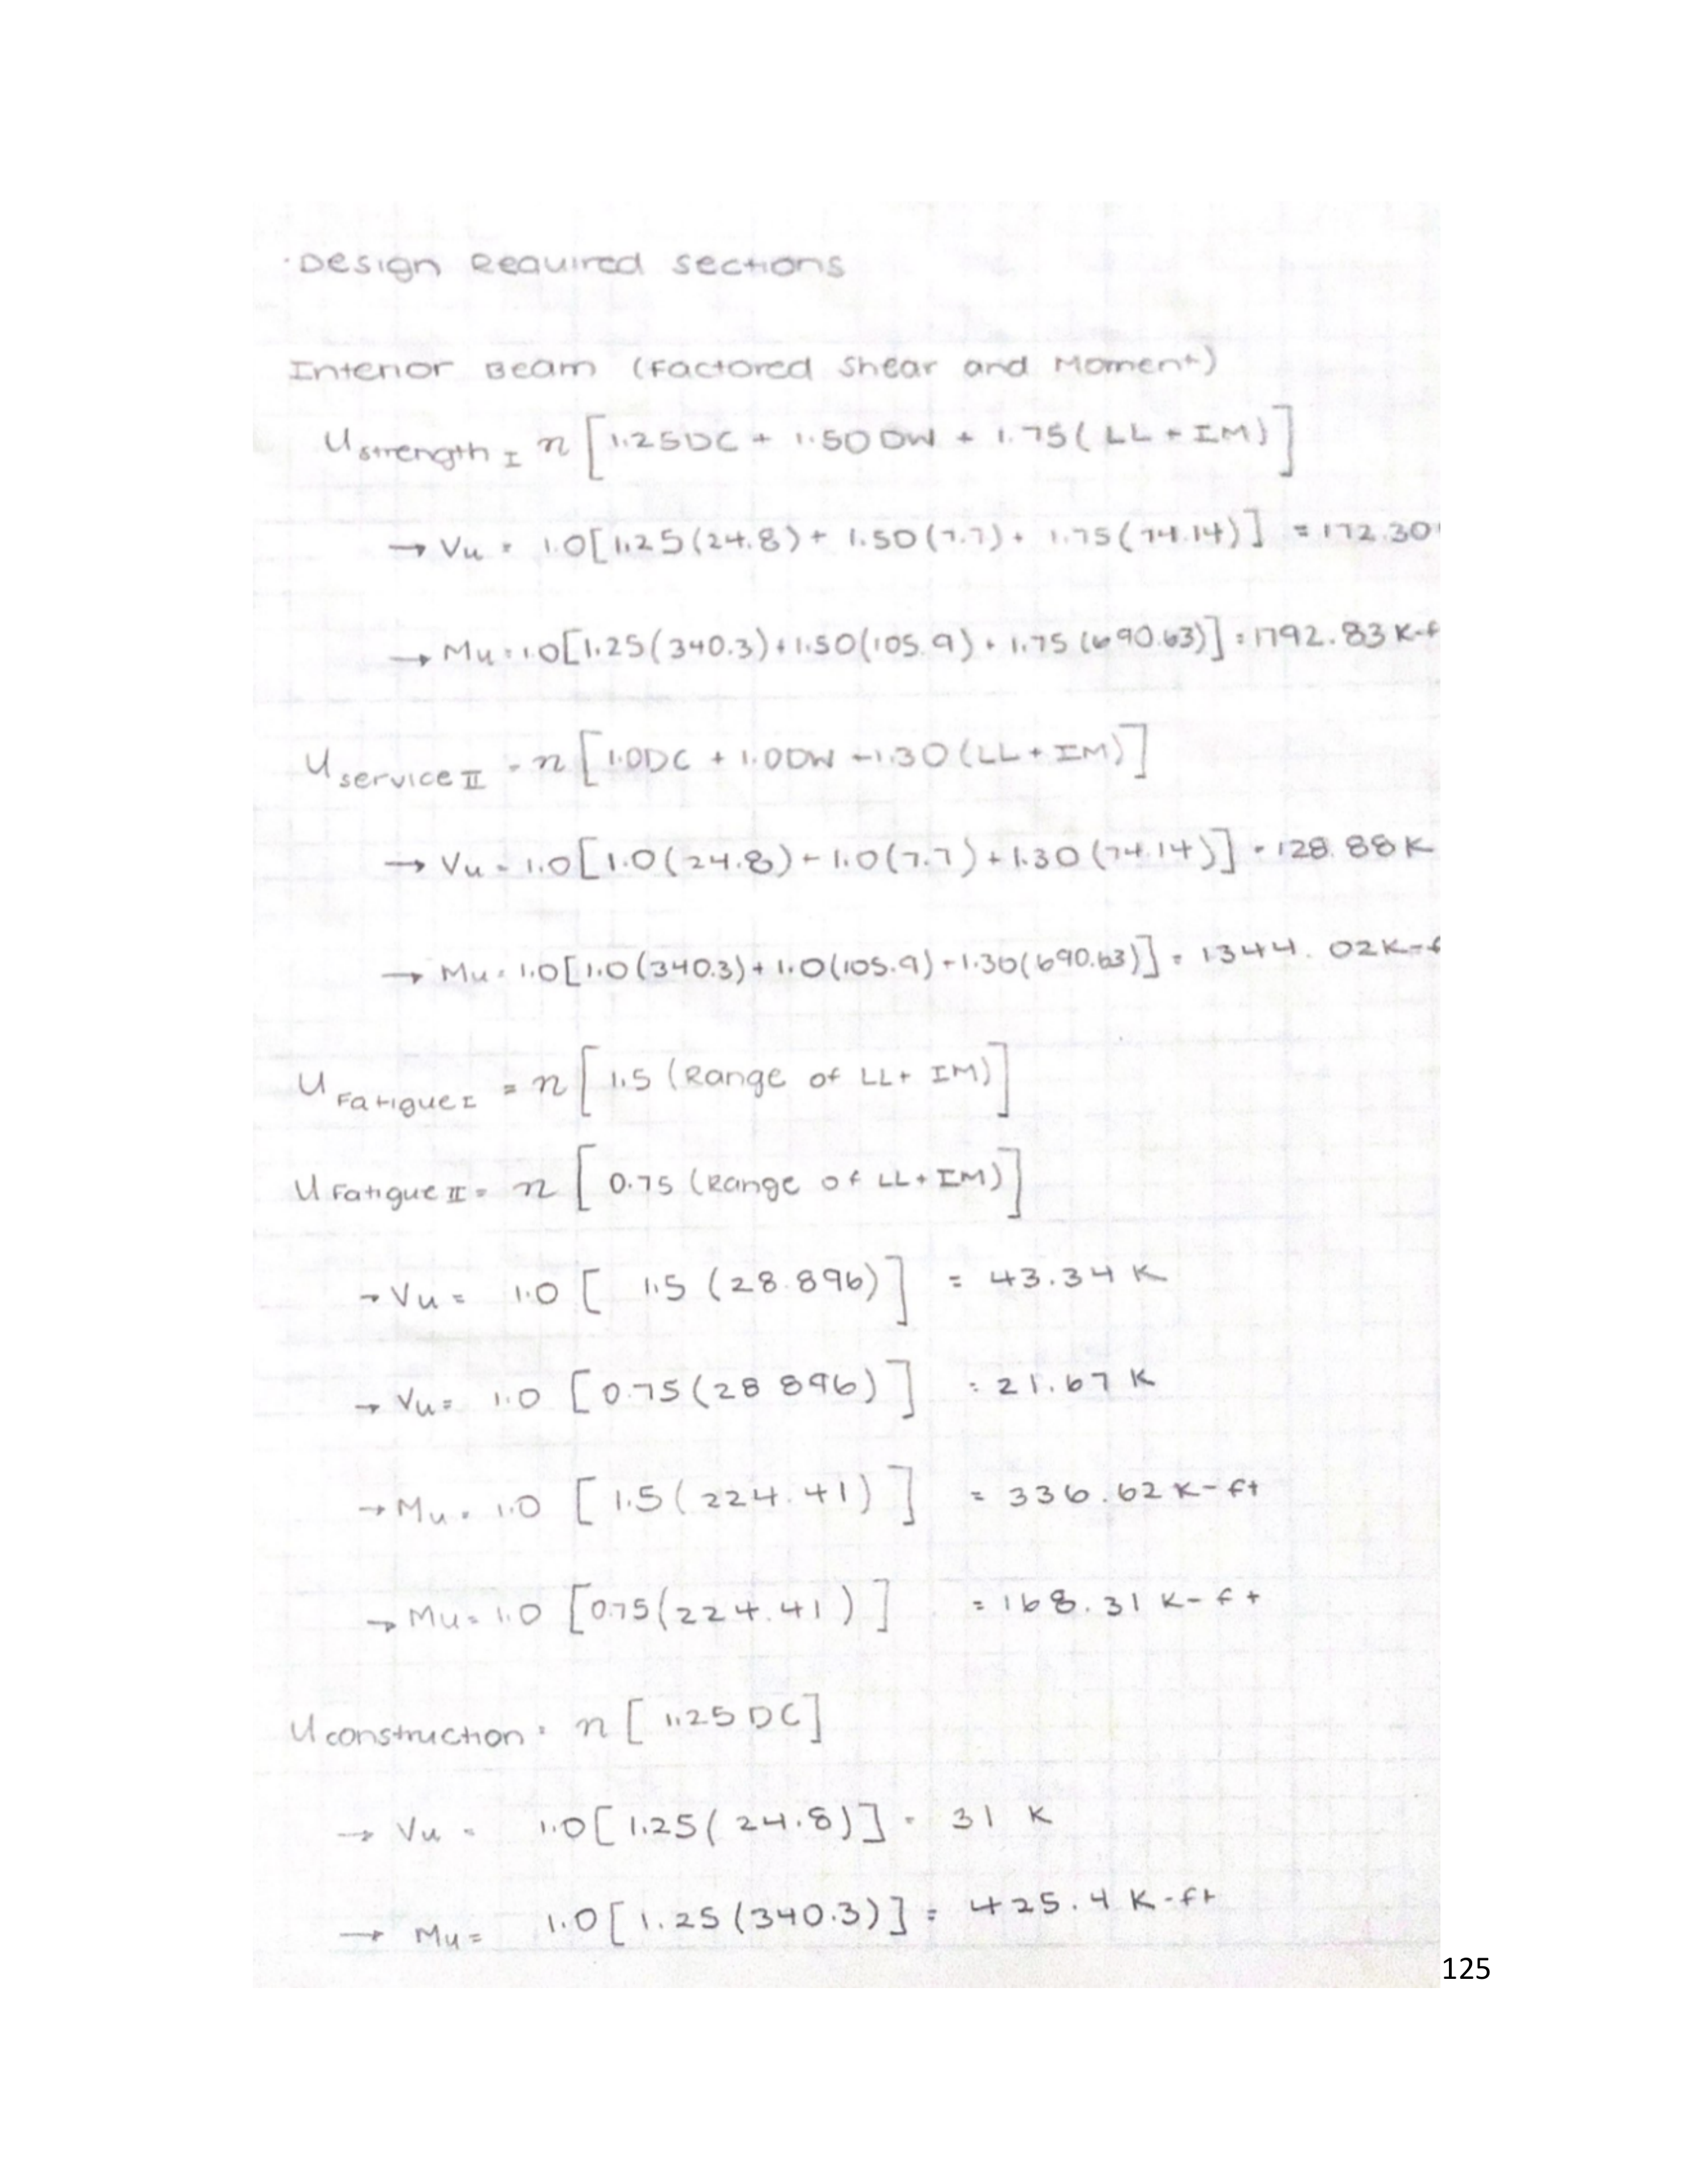 · Design Required Sections
Interior Beam (Factored Shear and Moment)
U strength I n [1.25DC + 1.50DW + 1.75(LL + IM)]
→ Vu = 1.0[1.25(24.8) + 1.50(7.7) + 1.75(74.14)] = 172.30
→ Mu = 1.0[1.25(340.3) + 1.50(105.9) + 1.75(690.63)] = 1792.83 K-f
U service II = n [1.0DC + 1.0DW + 1.30(LL + IM)]
→ Vu = 1.0[1.0(24.8) + 1.0(7.7) + 1.30(74.14)] = 128.88 K
→ Mu = 1.0[1.0(340.3) + 1.0(105.9) + 1.30(690.63)] = 1344.02 K-f
U Fatigue I = n [1.5 (Range of LL + IM)]
U Fatigue II = n [0.75 (Range of LL + IM)]
→ Vu = 1.0 [1.5 (28.896)] = 43.34 K
→ Vu = 1.0 [0.75(28.896)] = 21.67 K
→ Mu = 1.0 [1.5(224.41)] = 336.62 K-ft
→ Mu = 1.0 [0.75(224.41)] = 168.31 K-ft
U construction = n [1.25 DC]
→ Vu = 1.0[1.25(24.8)] = 31 K
→ Mu = 1.0[1.25(340.3)] = 425.4 K-ft
125